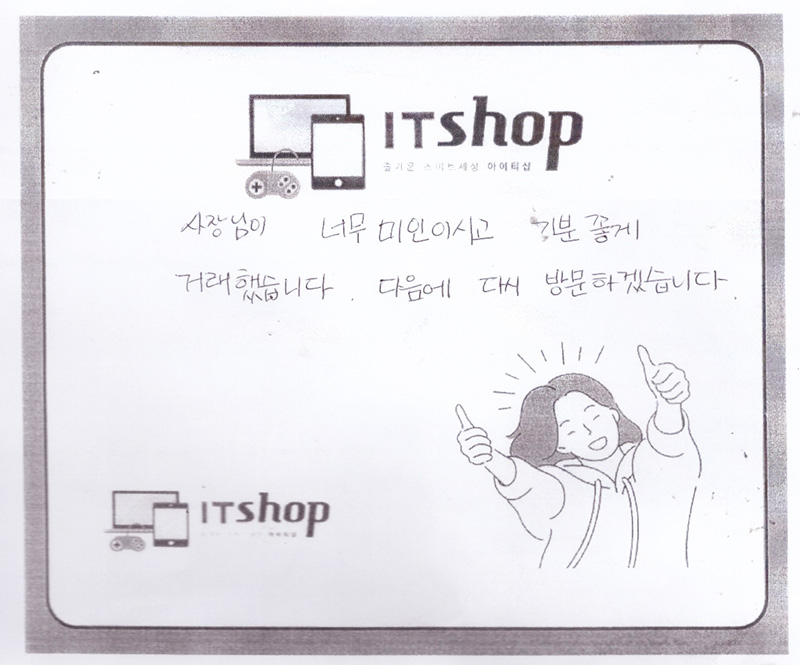 ITshop
즐거운 스마트세상 아이티샵
사장님이 너무 미인이시고 기분 좋게
거래했습니다. 다음에 다시 방문하겠습니다.
ITshop